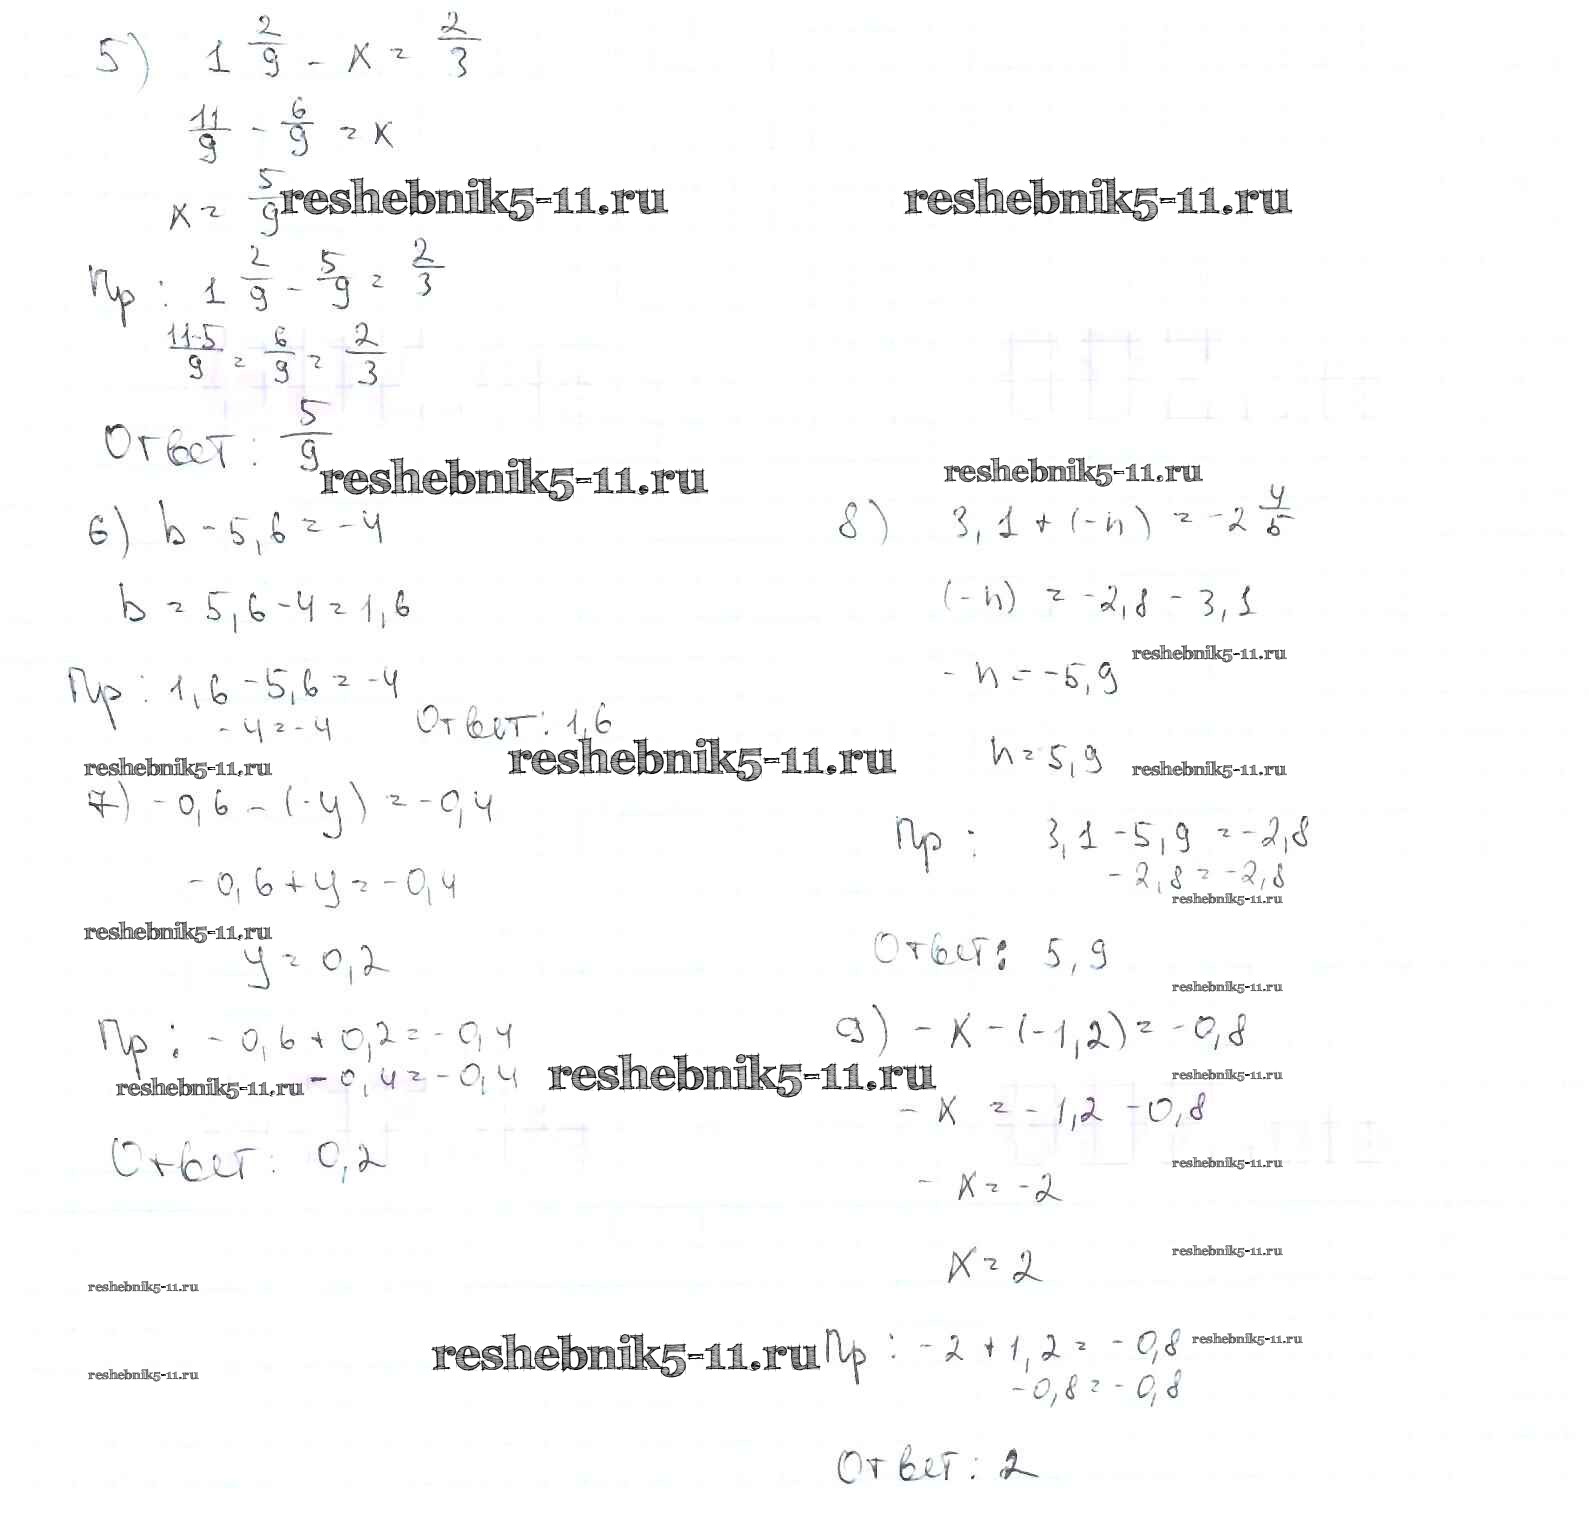 5) 1 2/9 - x = 2/3
11/9 - 6/9 = x
x = 5/9
reshebnik5-11.ru
reshebnik5-11.ru
Пр: 1 2/9 - 5/9 = 2/3
11-5/9 = 6/9 = 2/3
Ответ: 5/9
reshebnik5-11.ru
6) b - 5,6 = -4
b = 5,6 - 4 = 1,6
Пр: 1,6 - 5,6 = -4
-4 = -4
Ответ: 1,6
reshebnik5-11.ru
reshebnik5-11.ru
7) -0,6 - (-y) = -0,4
-0,6 + y = -0,4
reshebnik5-11.ru
y = 0,2
Пр: -0,6 + 0,2 = -0,4
reshebnik5-11.ru
-0,4 = -0,4
reshebnik5-11.ru
Ответ: 0,2
reshebnik5-11.ru
reshebnik5-11.ru
reshebnik5-11.ru
reshebnik5-11.ru
8) 3,1 + (-n) = -2 4/5
(-n) = -2,8 - 3,1
reshebnik5-11.ru
-n = -5,9
n = 5,9
reshebnik5-11.ru
Пр: 3,1 - 5,9 = -2,8
-2,8 = -2,8
reshebnik5-11.ru
Ответ: 5,9
reshebnik5-11.ru
9) -x - (-1,2) = -0,8
reshebnik5-11.ru
-x = -1,2 - 0,8
reshebnik5-11.ru
-x = -2
reshebnik5-11.ru
x = 2
Пр: -2 + 1,2 = -0,8
reshebnik5-11.ru
-0,8 = -0,8
Ответ: 2